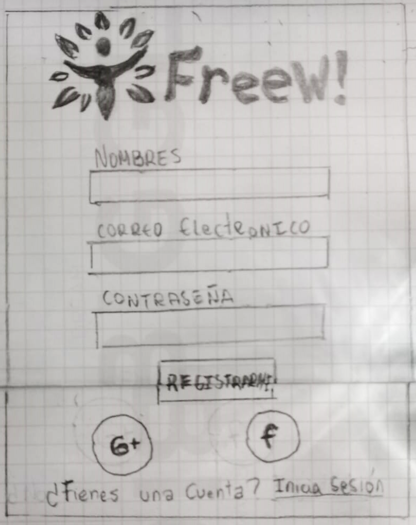 FreeW!
NOMBRES
CORREO ElectRoNICO
CONTRASEÑA
REGISTRARME
G+ f
¿Tienes una Cuenta? Inicia Sesión